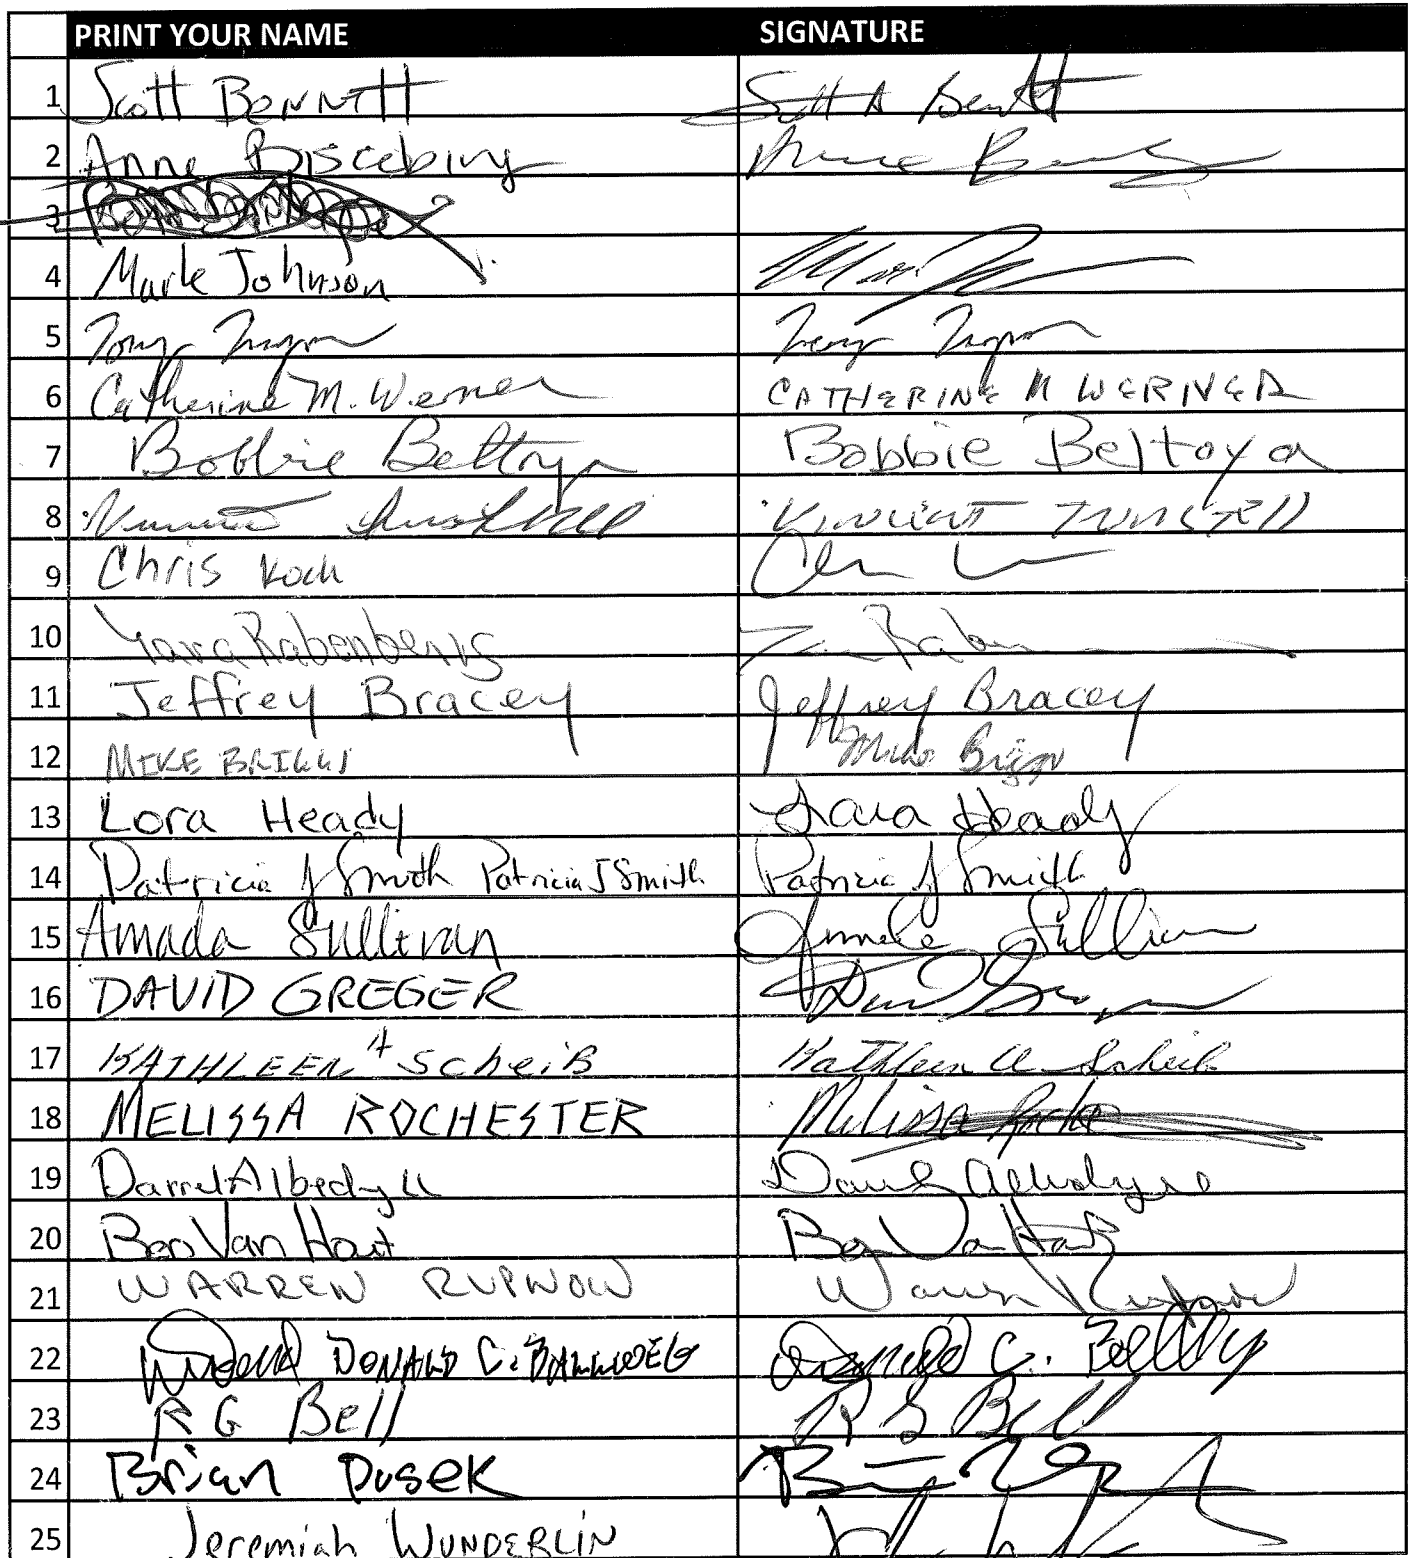 PRINT YOUR NAME SIGNATURE
1 Scott Bennett Scott A Bennett
2 Anne Anne
3
4 Mark Johnson
5
6 Catherine M. Werner CATHERINE M WERNER
7 Bobbie Beltoya Bobbie Beltoya
8 Vincent Tunstell VINCENT TUNSTELL
9 Chris Koch
10 Rabenberg
11 Jeffrey Bracey Jeffrey Bracey
12 MIKE BRIGGS Mike Briggs
13 Lora Heady Lora Heady
14 Patricia J Smith Patricia J Smith Patricia J Smith
15 Amada Sullivan Sullivan
16 DAVID GREGER David
17 KATHLEEN A ScheiB Kathleen A Scheib
18 MELISSA ROCHESTER Melissa
19 Darrel Albedyll Albedyll
20 Ben Van Hout Ben Van Hout
21 WARREN RUPNOW Warren Rupnow
22 DONALD C. BALLWEG Donald C.
23 R G Bell R G Bell
24 Brian Dusek
25 Jeremiah WUNDERLIN